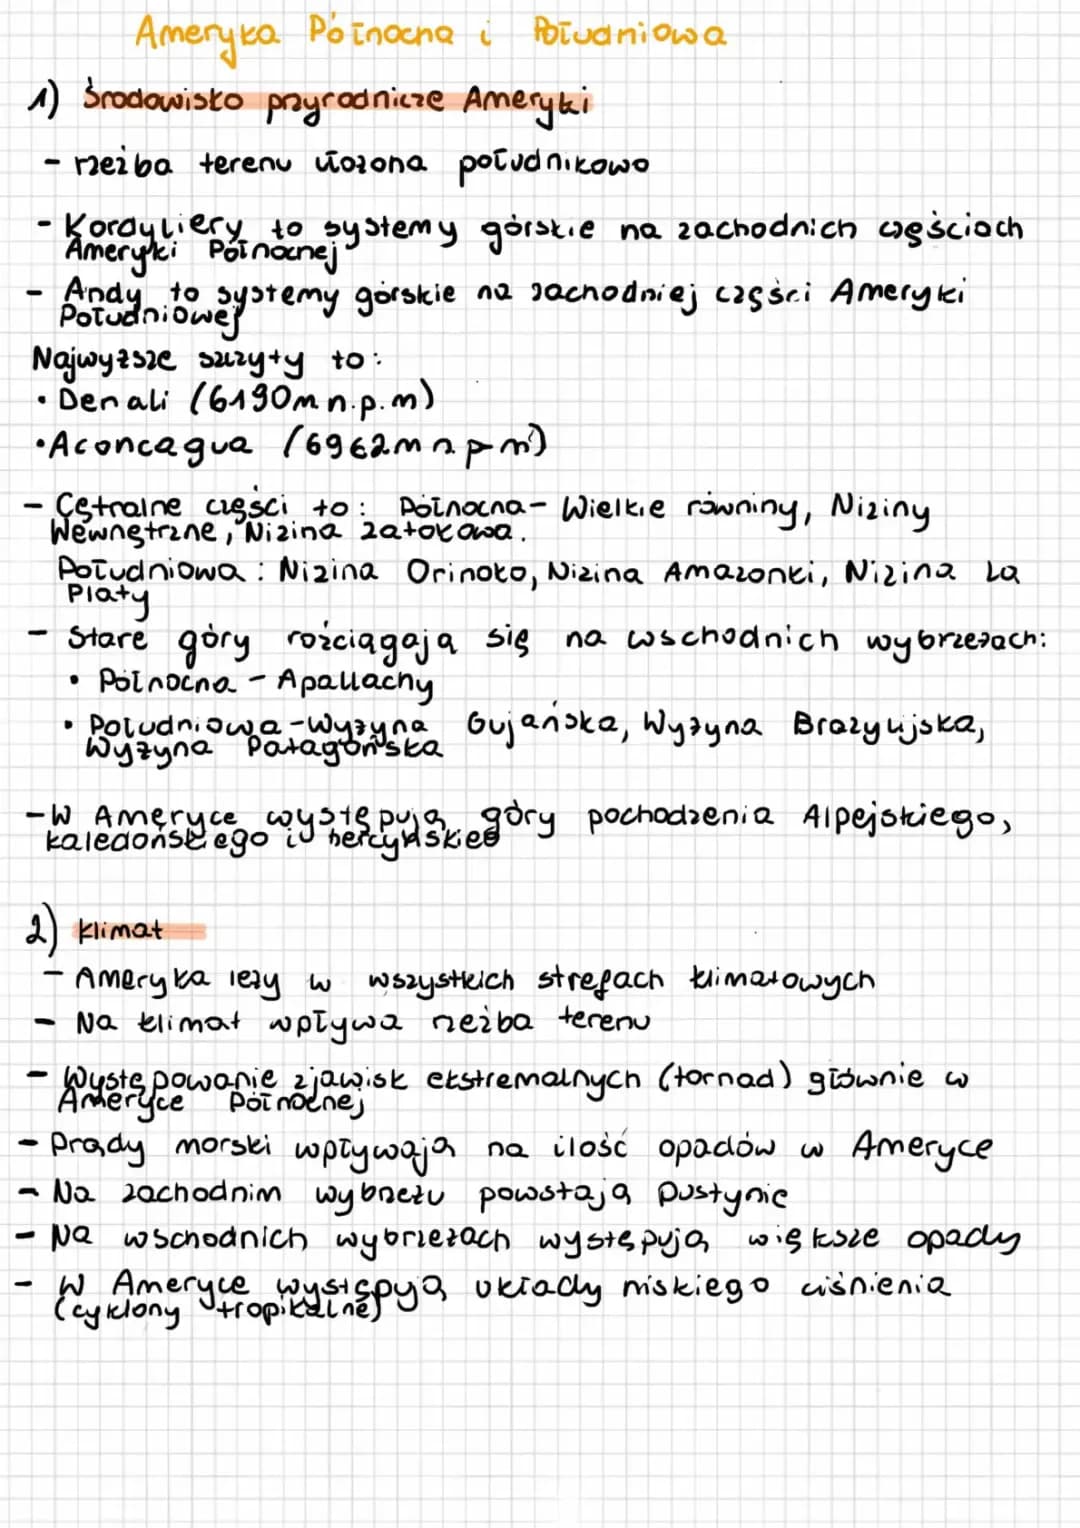 Ameryka Północna i Południowa
1) Środowisko przyrodnicze Ameryki
- rzeźba terenu ułożona południkowo
- Kordyliery to systemy górskie na zachodnich częściach
Ameryki Północnej
- Andy to systemy górskie na zachodniej części Ameryki
Południowej
Najwyższe szczyty to:
• Denali (6190m n.p.m)
• Aconcagua (6962m n p m)
- Cętralne części to: Północna- Wielkie równiny, Niziny
Wewnętrzne, Nizina zatokowa.
Południowa: Nizina Orinoko, Nizina Amazonki, Nizina La
Platy
- Stare góry rościągają się na wschodnich wybrzeżach:
• Północna - Apallachy
• Południowa -Wyżyna Gujańska, Wyżyna Brazylijska,
Wyżyna Patagońska
- W Ameryce występują góry pochodzenia Alpejskiego,
kaledońskiego i hercyńskieg
2) klimat
- Ameryka leży w wszystkich strefach klimatowych
- Na klimat wpływa rzeźba terenu
- Występowanie zjawisk ekstremalnych (tornad) głównie w
Ameryce Północnej
- Prądy morski wpływają na ilość opadów w Ameryce
- Na zachodnim wybrzeżu powstają pustynie
- Na wschodnich wybrzeżach występują większe opady
- W Ameryce występują układy niskiego ciśnienia
(cyklony tropikalne)